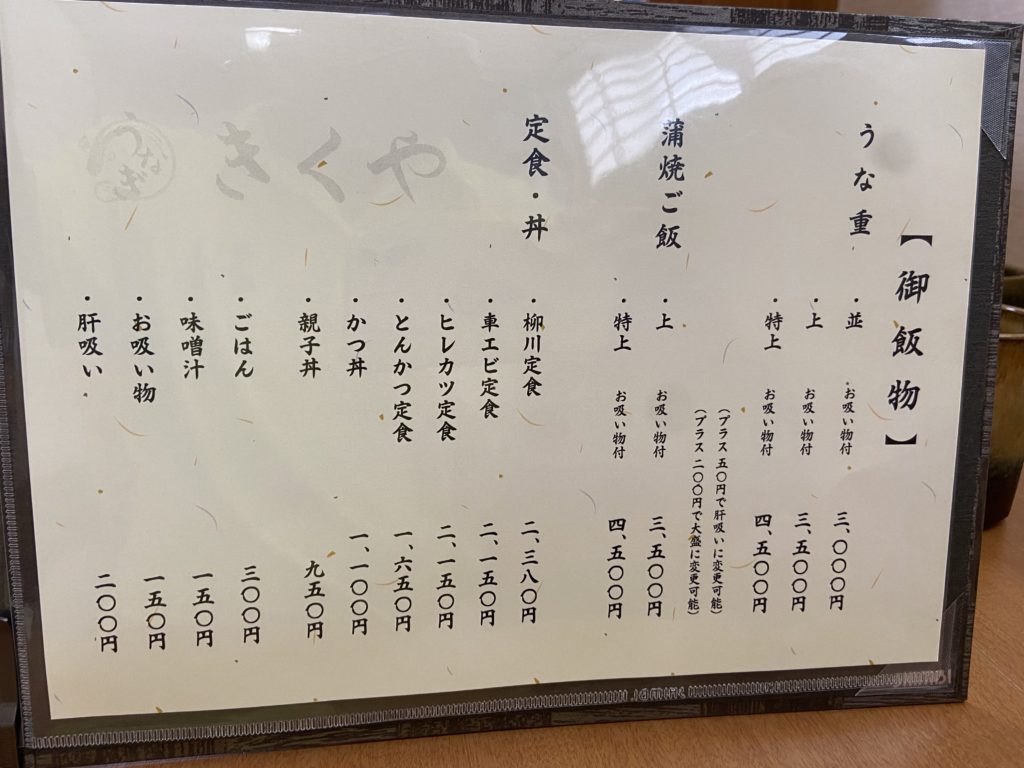 【御飯物】
うな重
・並 お吸い物付 三、〇〇〇円
・上 お吸い物付 三、五〇〇円
・特上 お吸い物付 四、五〇〇円
(プラス 五〇円で肝吸いに変更可能)
(プラス 二〇〇円で大盛に変更可能)
蒲焼ご飯
・上 お吸い物付 三、五〇〇円
・特上 お吸い物付 四、五〇〇円
定食・丼
・柳川定食 二、三八〇円
・車エビ定食 二、一五〇円
・ヒレカツ定食 二、一五〇円
・とんかつ定食 一、六五〇円
・かつ丼 一、一〇〇円
・親子丼 九五〇円
・ごはん 三〇〇円
・味噌汁 一五〇円
・お吸い物 一五〇円
・肝吸い 二〇〇円
きくや
うなぎ